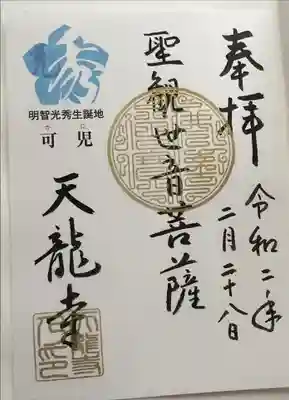 奉拝
令和二年
二月二十八日
聖観世音菩薩
明智光秀生誕地
可児
かに
天龍寺